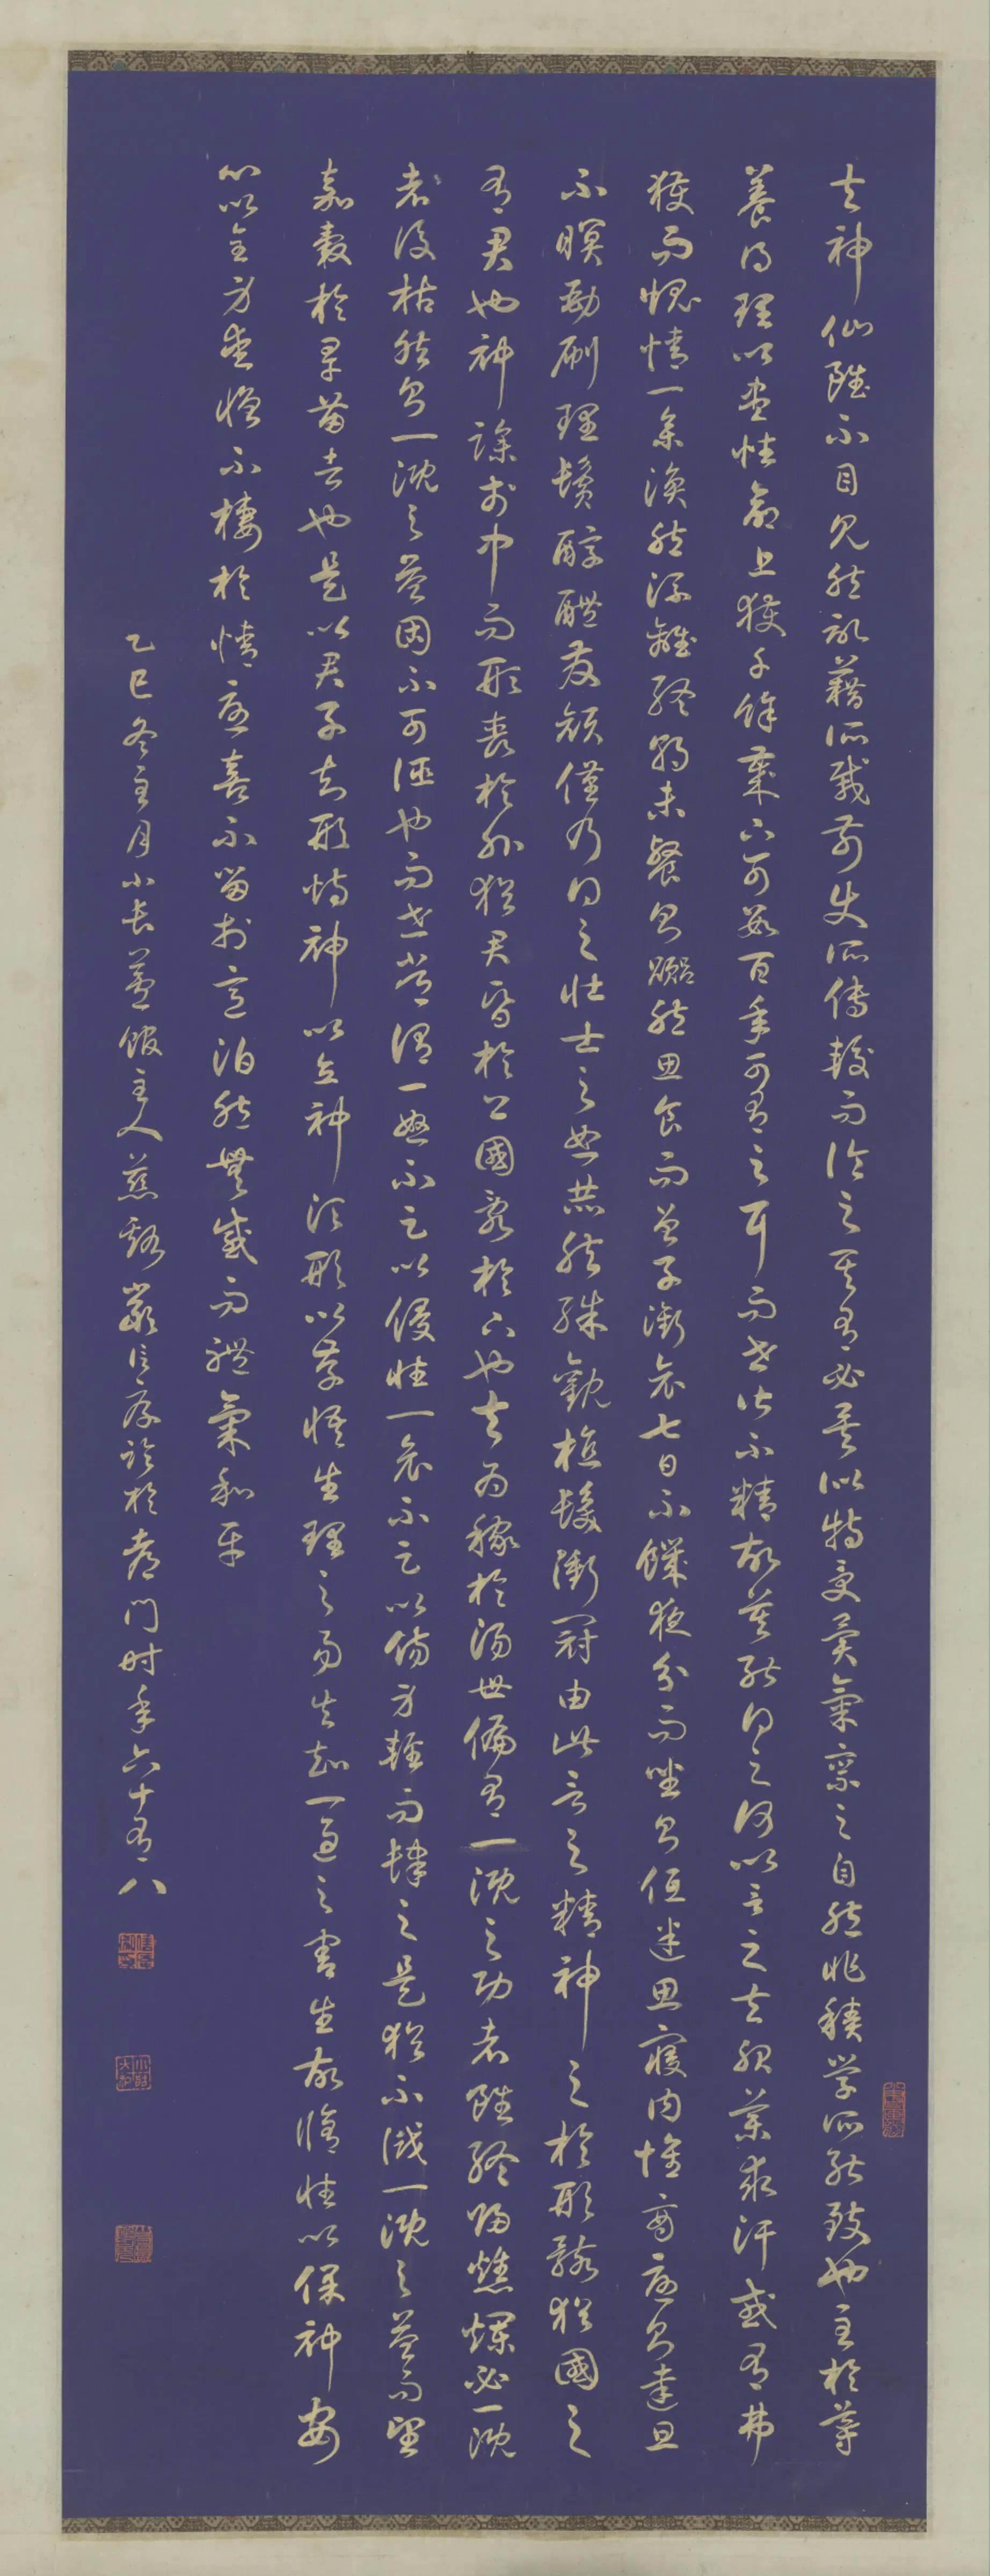 夫神仙雖不目見然記籍所載前史所傳較而論之其有必矣似特受異氣稟之自然非積學所能致也至於導
養得理以盡性命上獲千餘歲下可數百年可有之耳而世皆不精故莫能得之何以言之夫服藥求汗或有弗
獲而愧情一集渙然流離終朝未餐則囂然思食而曾子銜哀七日不饑夜分而坐則低迷思寢內懷殷憂則達旦
不瞑勁刷理鬢醇醴發顏僅乃得之壯士之怒赫然殊觀植髮衝冠由此言之精神之於形骸猶國之
有君也神躁於中而形喪於外猶君昏於上國亂於下也夫為稼於湯世偏有一溉之功者雖終歸燋爛必一溉
者後枯然則一溉之益固不可誣也而世常謂一怒不足以侵性一哀不足以傷身輕而肆之是猶不識一溉之益而望
嘉穀於旱苗者也是以君子知形恃神以立神須形以存悟生理之易失知一過之害生故修性以保神安
心以全身愛憎不棲於情憂喜不留於意泊然無感而體氣和平
乙巳冬至月小長蘆館主人慈谿嚴信厚臨於都門时年六十有八